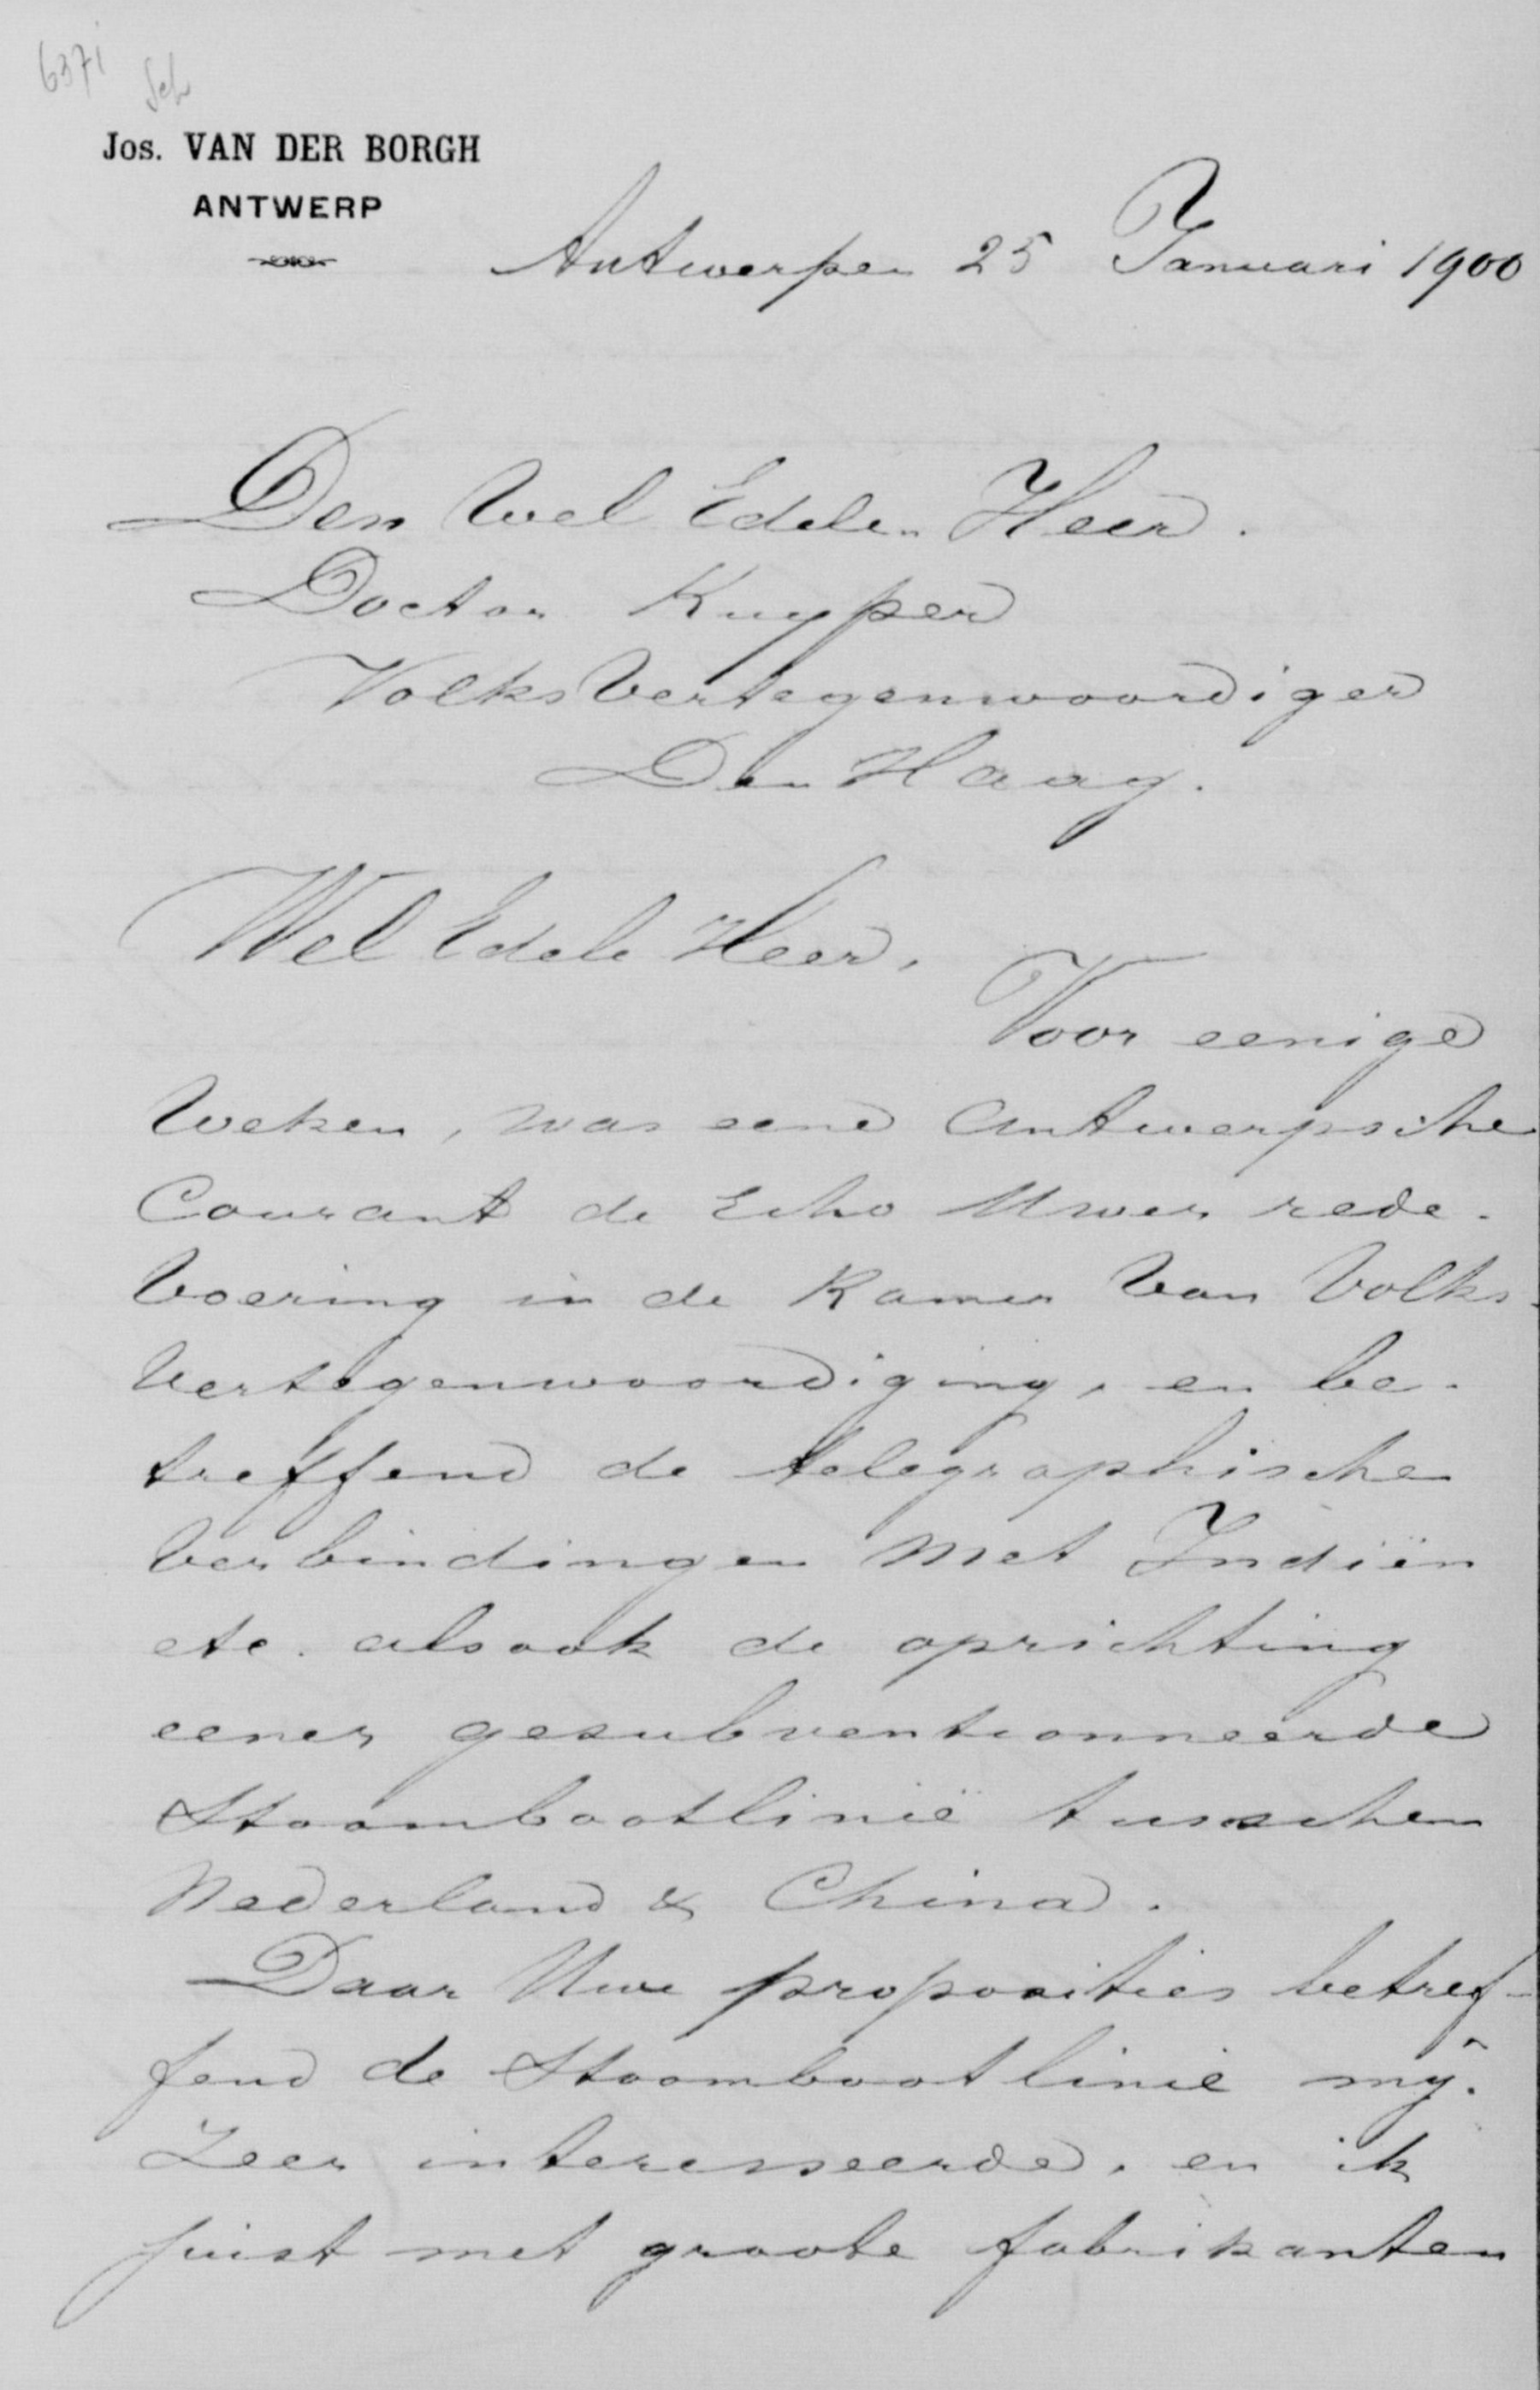 6371
Jos. VAN DER BORGH
ANTWERP
Antwerpen 25 Januari 1900
Den Wel Edelen Heer.
Doctor Kuyper
Volksvertegenwoordiger
Den Haag.
Wel Edele Heer,
Voor eenige
weken, was eene Antwerpsche
Courant de Echo Uwer rede-
voering in de Kamer van Volks-
vertegenwoordiging, en be-
treffend de telegraphische
verbindingen met Indiën
etc. alsook de oprichting
eener gesubventionneerde
Stoombootlinië tusschen
Nederland & China.
Daar Uwe proposities betref-
fend de Stoombootlinie mij
zeer interesseerde, en ik
juist met groote fabrikanten